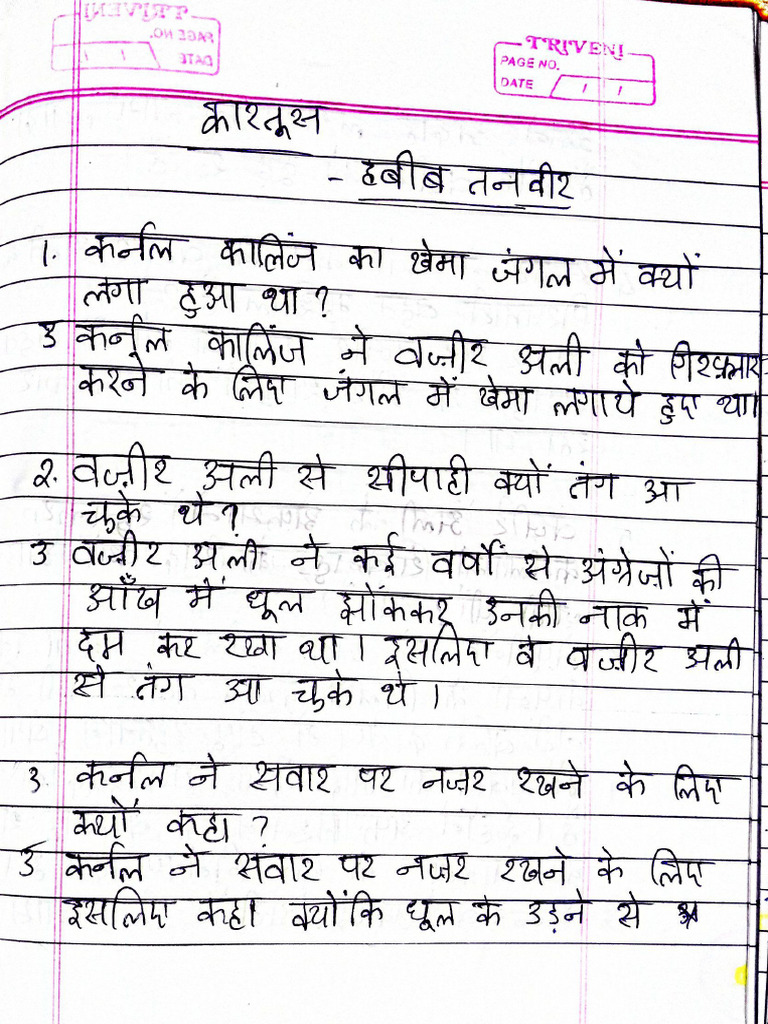 TRIVENI
PAGE NO.
DATE / /
कारतूस
- हबीब तनवीर
1. कर्नल कालिंज का खेमा जंगल में क्यों
लगा हुआ था?
उ कर्नल कालिंज ने वज़ीर अली को गिरफ़्तार
करने के लिए जंगल में खेमा लगाये हुए था।
2. वज़ीर अली से सीपाही क्यों तंग आ
चुके थे?
उ वज़ीर अली ने कई वर्षों से अंग्रेज़ों की
आँख में धूल झोंककर उनकी नाक में
दम कर रखा था। इसलिए वे वज़ीर अली
से तंग आ चुके थे।
3. कर्नल ने सवार पर नजर रखने के लिए
क्यों कहा?
उ कर्नल ने सवार पर नजर रखने के लिए
इसलिए कहा क्योंकि धूल के उड़ने से